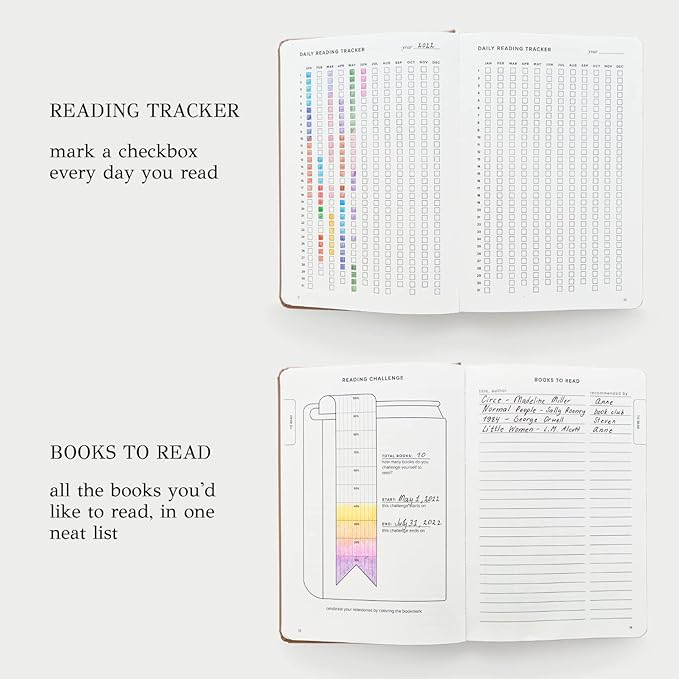 READING TRACKER
mark a checkbox
every day you read
DAILY READING TRACKER
year 2022
JAN FEB MAR APR MAY JUN JUL AUG SEP OCT NOV DEC
DAILY READING TRACKER
year
JAN FEB MAR APR MAY JUN JUL AUG SEP OCT NOV DEC
BOOKS TO READ
all the books you'd
like to read, in one
neat list
READING CHALLENGE
TO READ
TOTAL BOOKS: 10
how many books do you
challenge yourself to
read?
START: May 1, 2022
this challenge starts on
END: July 31, 2022
this challenge ends on
celebrate your milestones by coloring the bookmark
BOOKS TO READ
title, author recommended by
Circe - Madeline Miller Anne
Normal People - Sally Rooney book club
1984 - George Orwell Steven
Little Women - L.M. Alcott Anne
TO READ